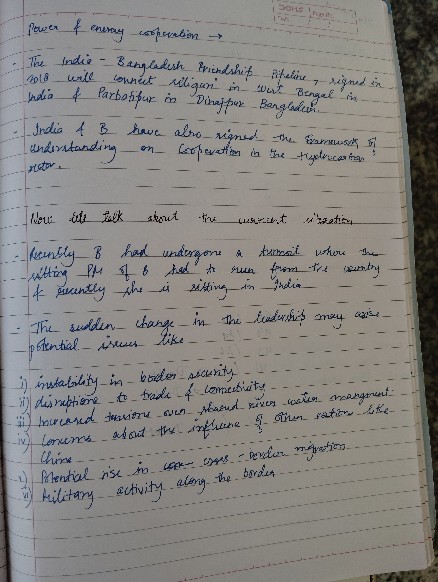 Power & energy cooperation →
- The India - Bangladesh Friendship Pipeline, signed in
2018 will connect siliguri in West Bengal in
India & Parbatipur in Dinajpur Bangladesh.
- India & B have also signed the Framework of
understanding on Cooperation in the Hydrocarbon
sector.
Now lets talk about the current situation
- Recently B had undergone a turmoil where the
sitting PM of B had to run from the country
& recently she is sitting in India
- The sudden change in the leadership may arise
potential issues like
i) instability in border security
ii) disruptions to trade & connectivity
iii) Increased tensions over shared river water mangment
iv) Concerns about the influence of other nation like
China
v) Potential rise in border migration
vi) Military activity along the border